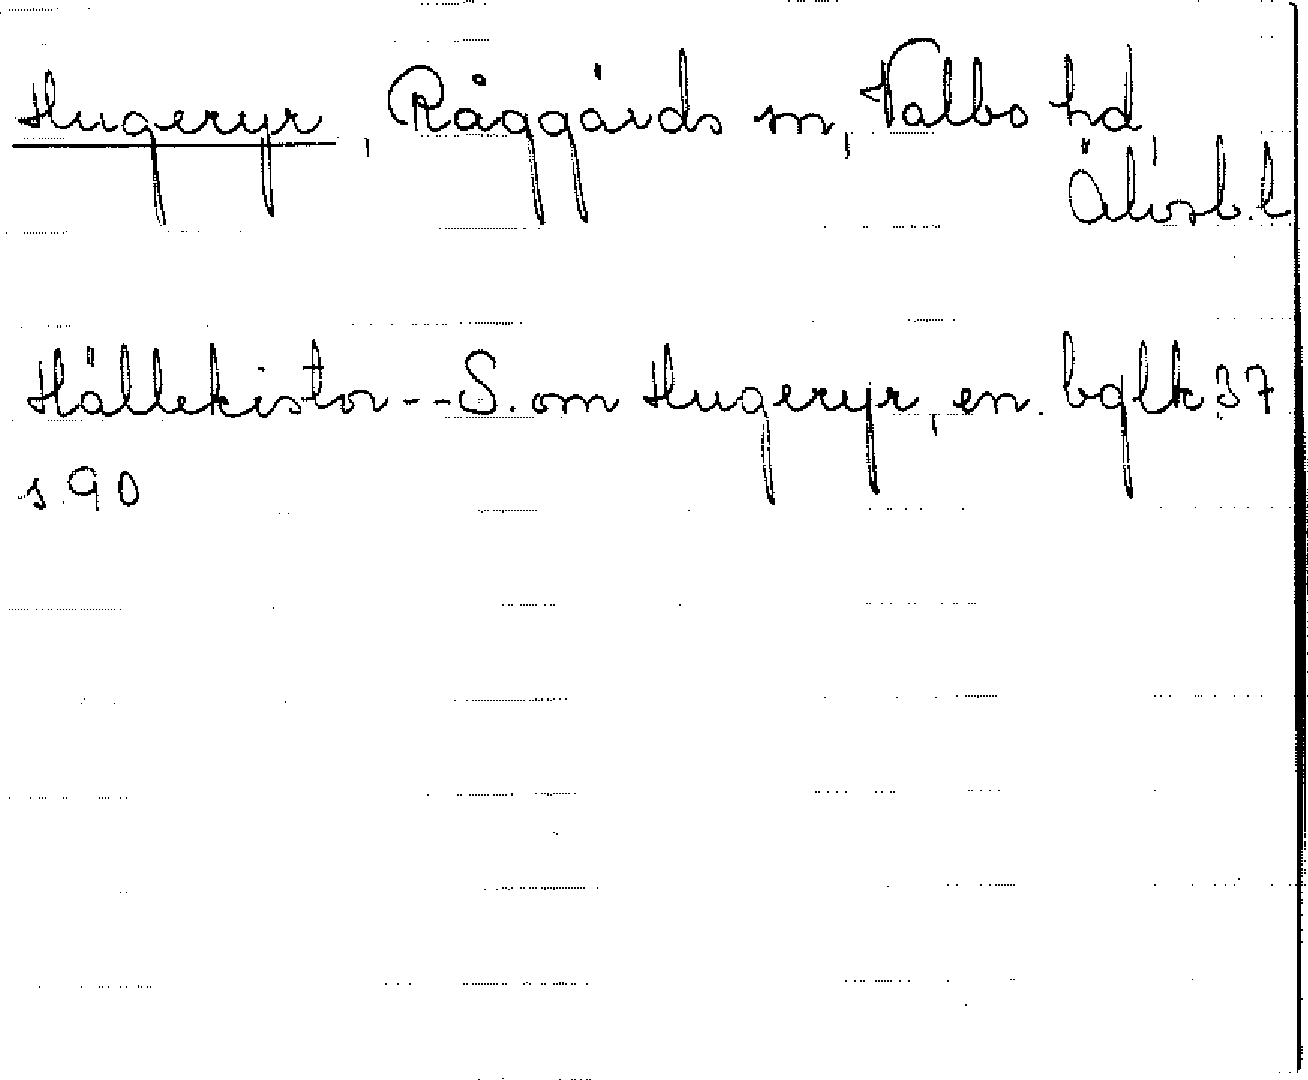 Hugeryr, Råggärds sn, Valbo hd,
Älvsb.l
Hällekistor--S. om Hugeryr, en. bglk 37
s. 90